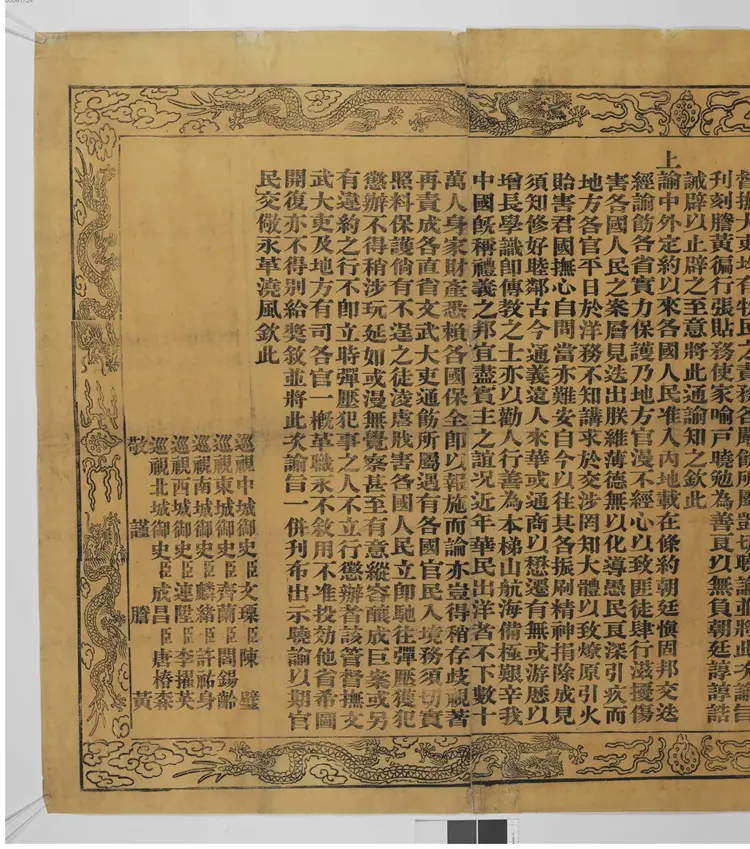 督撫大吏均有牧民之責務各嚴飭所屬剴切曉諭並將此次諭旨
刊刻謄黃徧行張貼務使家喻戶曉勉為善良以無負朝廷諄諄誥
誡辟以止辟之至意將此通諭知之欽此
上諭中外定約以來各國人民准入內地載在條約朝廷慎固邦交迭
經諭飭各省實力保護乃地方官漫不經心以致匪徒肆行滋擾傷
害各國人民之案層見迭出朕維薄德無以化導愚民良深引疚而
地方各官平日於洋務不知講求於交涉罔知大體以致燎原引火
貽害君國撫心自問當亦難安自今以往其各振刷精神捐除成見
須知修好睦鄰古今通義遠人來華或通商以懋遷有無或游歷以
增長學識即傳教之士亦以勸人行善為本梯山航海備極艱辛我
中國既稱禮義之邦宜盡賓主之誼況近年華民出洋者不下數十
萬人身家財產悉賴各國保全即以報施而論亦豈得稍存歧視著
再責成各直省文武大吏通飭所屬遇有各國官民入境務須切實
照料保護倘有不逞之徒凌虐戕害各國人民立即馳往彈壓獲犯
懲辦不得稍涉玩延如或漫無覺察甚至有意縱容釀成巨案或另
有違約之行不即立時彈壓犯事之人不立行懲辦者該管督撫文
武大吏及地方有司各官一概革職永不敘用不准投効他省希圖
開復亦不得別給獎敘並將此次諭旨一併刊布出示曉諭以期官
民交儆永革澆風欽此
巡視中城御史臣文瑮臣陳璧
巡視東城御史臣齊蘭臣閻錫齡
巡視南城御史臣麟緒臣許祐身
巡視西城御史臣連陞臣李擢英
巡視北城御史臣成昌臣唐椿森
敬謹謄黃